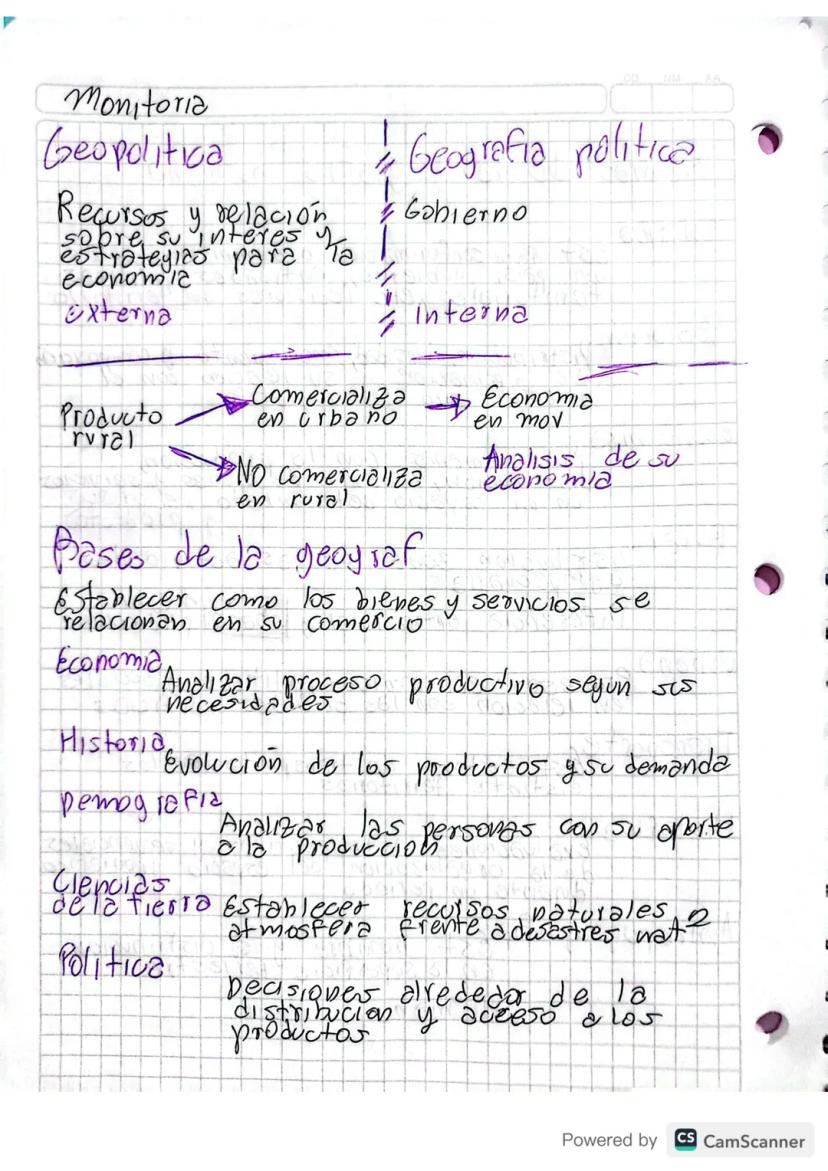 Monitoria
Geopolitica
Geografia politica
Recursos y relación
sobre su interes y
estrategias para la
economia
externa
Gobierno
Interna
Producto
rural
Comercializa
en urbano
Economia
en mov
NO comercializa
en rural
Analisis de su
economia
Bases de la geograf
Establecer como los bienes y servicios se
relacionan en su comercio
Economia
Analizar proceso productivo segun sus
necesidades
Historia
Evolución de los productos y su demanda
Demografia
Analizar las personas con su aporte
a la produccion
Ciencias
de la tierra
Establecer recursos naturales
atmosfera frente a desastres nat
Politica
Decisiones alrededor de la
distribucion y acceso a los
productos
Powered by CS CamScanner